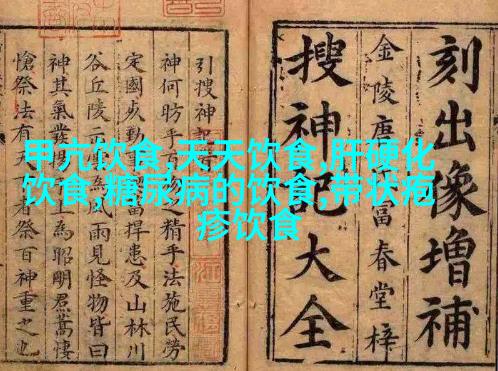 甲亢饮食,天天饮食,肝硬化
饮食,糖尿病的饮食,带状疱
疹饮食
刻出像增補
金陵唐富春堂梓
搜神記大全
引搜神記
神何昉乎百物之精乎法施民勞
定國勤事捍患及山林川
谷丘陵風雨見怪物皆曰
神其氣發揚上爲昭明焄蒿悽
愴祭法有天者祭百神重之也